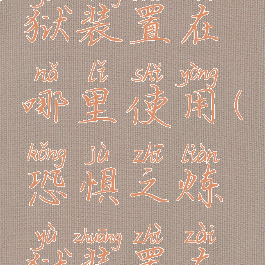 狱装置在
nǎ lǐ shǐ yòng
哪里使用(
kǒng jù zhī liàn
恐惧之炼
yù zhuāng zhì zài
狱装置在